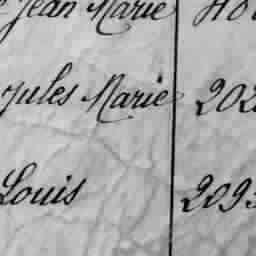 Jean Marie
Jules Marie 202
Louis 2093